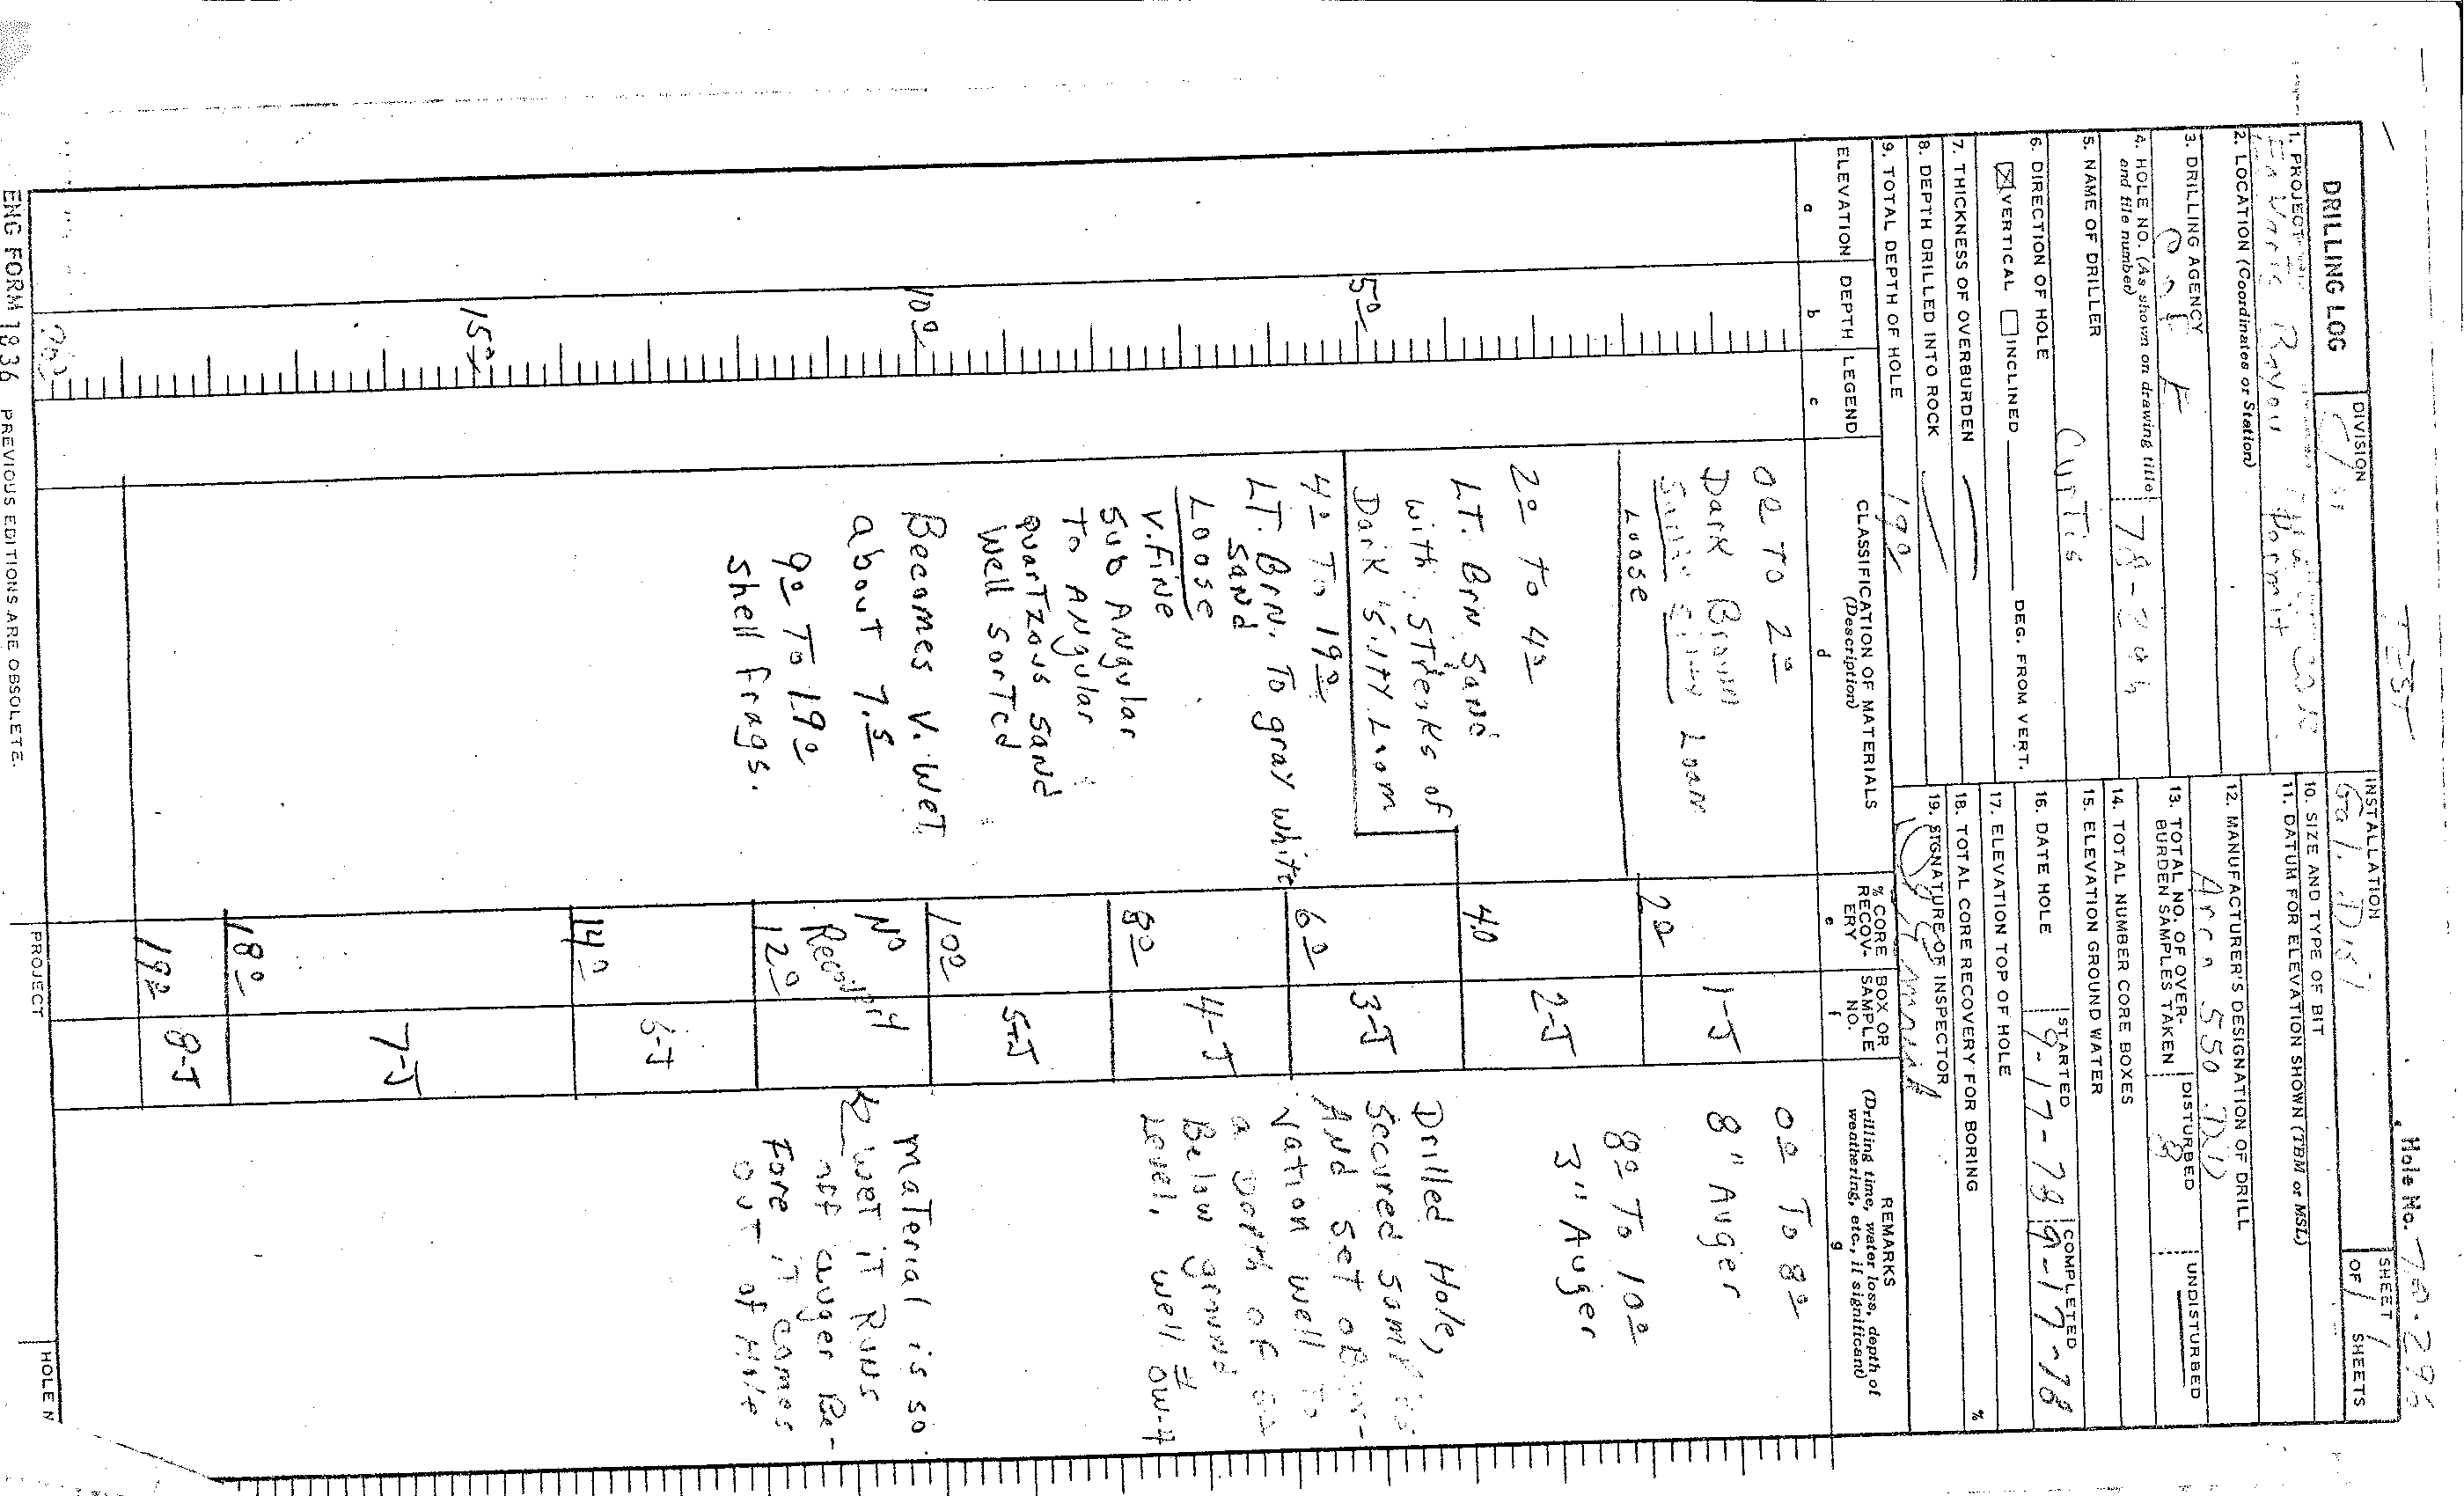 TEST
Hole No. 78-296
DRILLING LOG
DIVISION
INSTALLATION
Gal. Dist
SHEET 1
OF 1 SHEETS
1. PROJECT
Bayou
Permit
10. SIZE AND TYPE OF BIT
11. DATUM FOR ELEVATION SHOWN (TBM or MSL)
2. LOCATION (Coordinates or Station)
12. MANUFACTURER'S DESIGNATION OF DRILL
3. DRILLING AGENCY
C of E
13. TOTAL NO. OF OVER-
BURDEN SAMPLES TAKEN
DISTURBED
8
UNDISTURBED
4. HOLE NO. (As shown on drawing title
and file number)
14. TOTAL NUMBER CORE BOXES
5. NAME OF DRILLER
Curtis
15. ELEVATION GROUND WATER
6. DIRECTION OF HOLE
VERTICAL INCLINED DEG. FROM VERT.
16. DATE HOLE
STARTED
9-17-78
COMPLETED
9-17-78
7. THICKNESS OF OVERBURDEN
17. ELEVATION TOP OF HOLE
8. DEPTH DRILLED INTO ROCK
18. TOTAL CORE RECOVERY FOR BORING %
9. TOTAL DEPTH OF HOLE 19.0
19. SIGNATURE OF INSPECTOR
ELEVATION
a
DEPTH
b
LEGEND
c
CLASSIFICATION OF MATERIALS
(Description)
d
% CORE
RECOV-
ERY
e
BOX OR
SAMPLE
NO.
f
REMARKS
(Drilling time, water loss, depth of
weathering, etc., if significant)
g
0.0 To 2.0
Dark Brown
Loam
Loose
2.0 To 4.0
LT. Brn Sand
with streaks of
Dark Silty Loam
4.0 To 19.0
LT. Brn. To gray white
Sand
Loose
V. Fine
Sub ANgular
To ANgular
quartzous sand
well sorted
Becomes V. Wet
about 7.5
9.0 To 19.0
shell frags.
5.0
10.0
15.0
20.0
2.0
4.0
6.0
8.0
10.0
No
Recovery
12.0
14.0
18.0
19.0
1-J
2-J
3-J
4-J
5-J
6-J
7-J
8-J
0.0 To 8.0
8" Auger
8.0 To 10.0
3" Auger
Drilled Hole,
Secured samples
And set obser-
vation well To
a Depth of
Below ground
Level. well #
OW-4
material is so
wet it Runs
off auger Be-
Fore it comes
out of Hole
ENG FORM 1836 PREVIOUS EDITIONS ARE OBSOLETE.
PROJECT
HOLE N